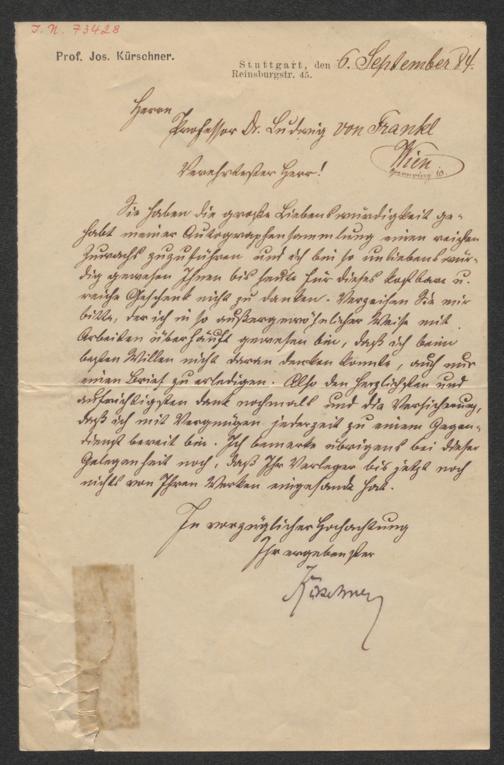 I. N. 73428
Prof. Jos. Kürschner.
Stuttgart, den 6. September 84.
Reinsburgstr. 45.
Herrn
Professor Dr. Ludwig von Frankl
Wien
Verehrtester Herr!
Sie haben die große Liebenswürdigkeit ge-
habt meiner Autographensammlung einen reichen
Zuwachs zuzuführen und ich bin so unliebenswür-
dig gewesen Ihnen bis heute für dieses kostbare u.
reiche Geschenk nicht zu danken. Verzeihen Sie mir
bitte, der ich in so außergewöhnlicher Weise mit
Arbeiten überhäuft gewesen bin, daß ich beim
besten Willen nicht daran denken konnte, auch nur
einen Brief zu erledigen. Also den herzlichsten und
aufrichtigsten Dank nochmals und die Versicherung,
daß ich mit Vergnügen jederzeit zu einem Gegen-
dienst bereit bin. Ich bemerke übrigens bei dieser
Gelegenheit noch, daß Ihr Verleger bis jetzt noch
nichts von Ihren Werken eingesandt hat.
In vorzüglicher Hochachtung
Ihr ergebenster
Kürschner